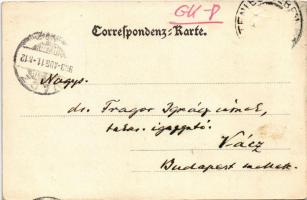 GK-P
Correspondenz-Karte.
Nagys.
dr. Fragor Ignác úrnak,
takar. igazgató.
Vácz
Budapest mellett.